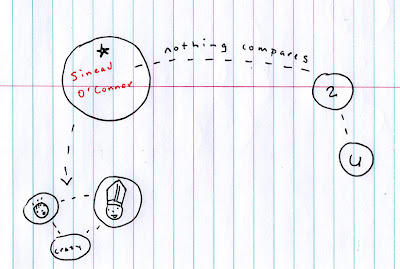 nothing compares
Sinead
O'Connor
2
U
crazy